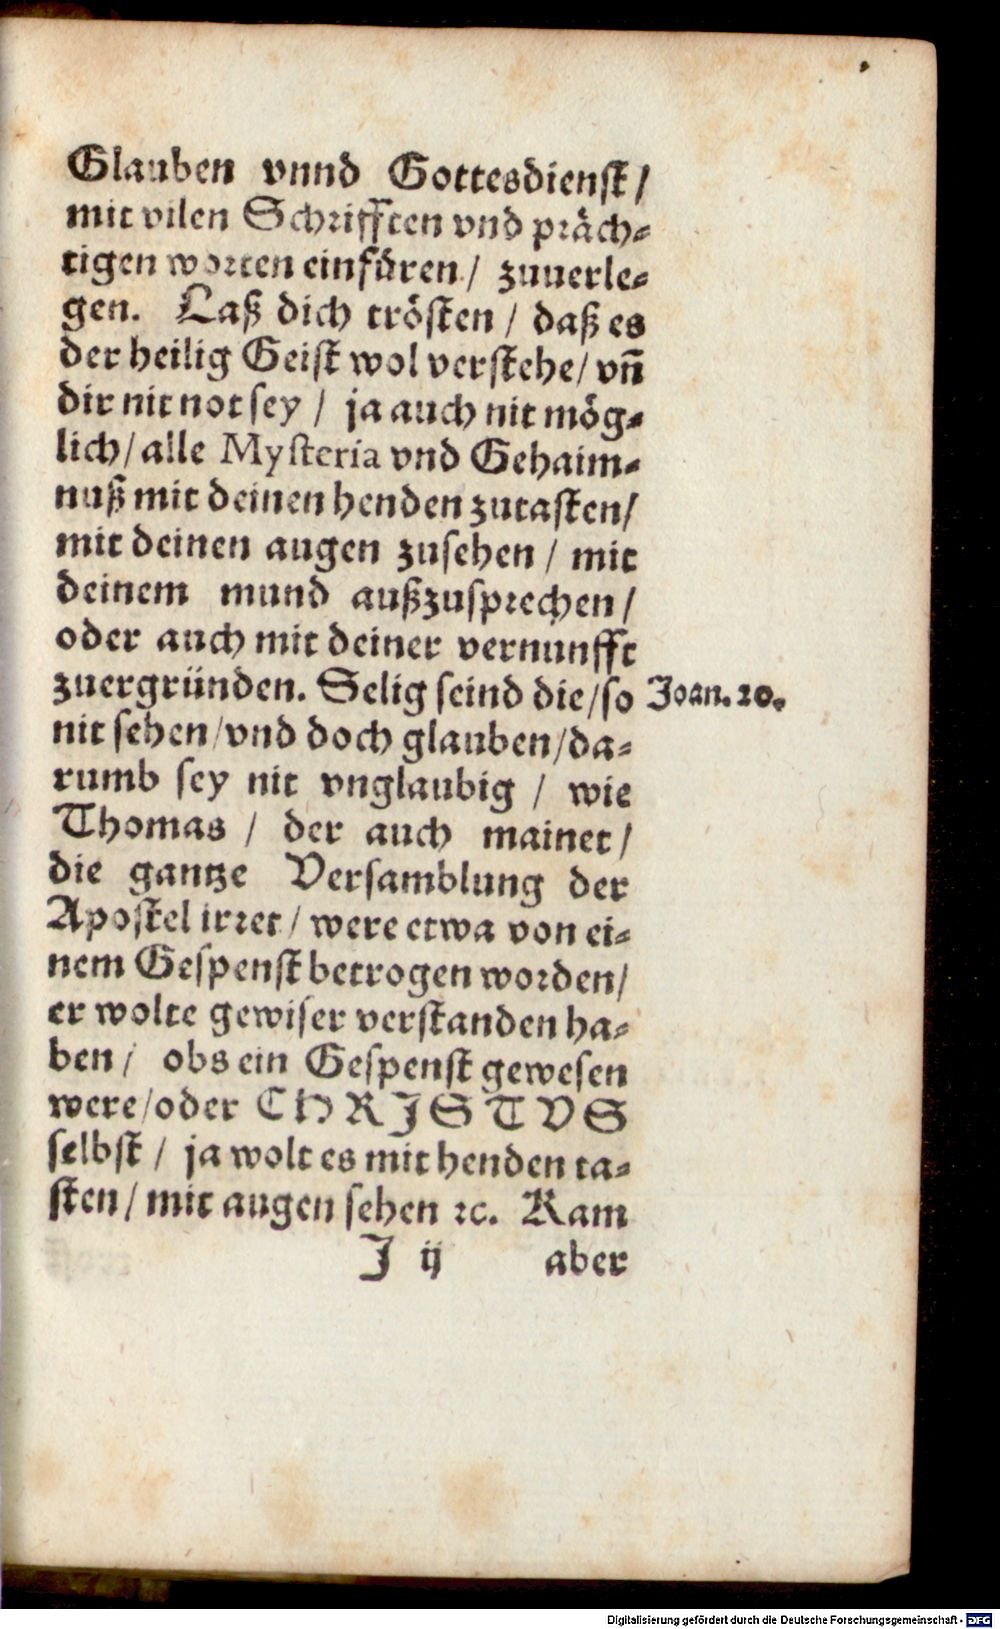 Glauben vnnd Gottesdienst /
mit vilen Schrifften vnd präch⸗
tigen worten einfüren / zuuerle⸗
gen. Laß dich trösten / daß es
der heilig Geist wol verstehe / vñ
dir nit not sey / ja auch nit mög⸗
lich / alle Mysteria vnd Gehaim⸗
nuß mit deinen henden zutasten /
mit deinen augen zusehen / mit
deinem mund außzusprechen /
oder auch mit deiner vernunfft
zuergründen. Selig seind die / so Joan. 20.
nit sehen / vnd doch glauben / da⸗
rumb sey nit vnglaubig / wie
Thomas / der auch mainet /
die gantze Versamblung der
Apostel irret / were etwa von ei⸗
nem Gespenst betrogen worden /
er wolte gewiser verstanden ha⸗
ben / obs ein Gespenst gewesen
were / oder CHRJSTVS
selbst / ja wolt es mit henden ta⸗
sten / mit augen sehen ꝛc. Kam
J ij aber
Digitalisierung gefördert durch die Deutsche Forschungsgemeinschaft - DFG